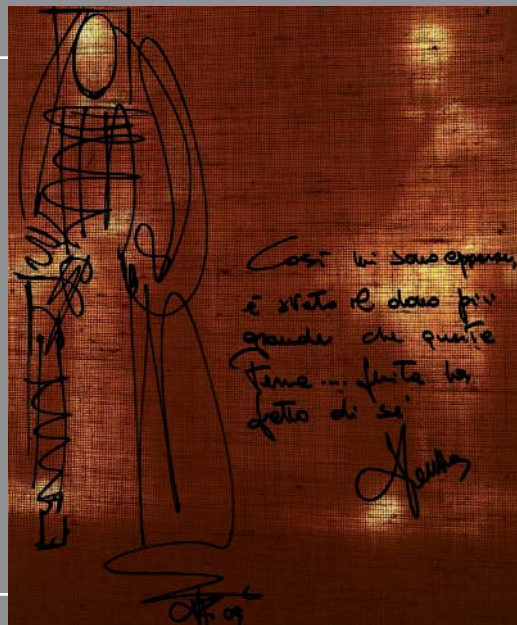 Così mi sono
è stato il dono più
grande che questa
Terra ... ferita ha
fatto di sé
09